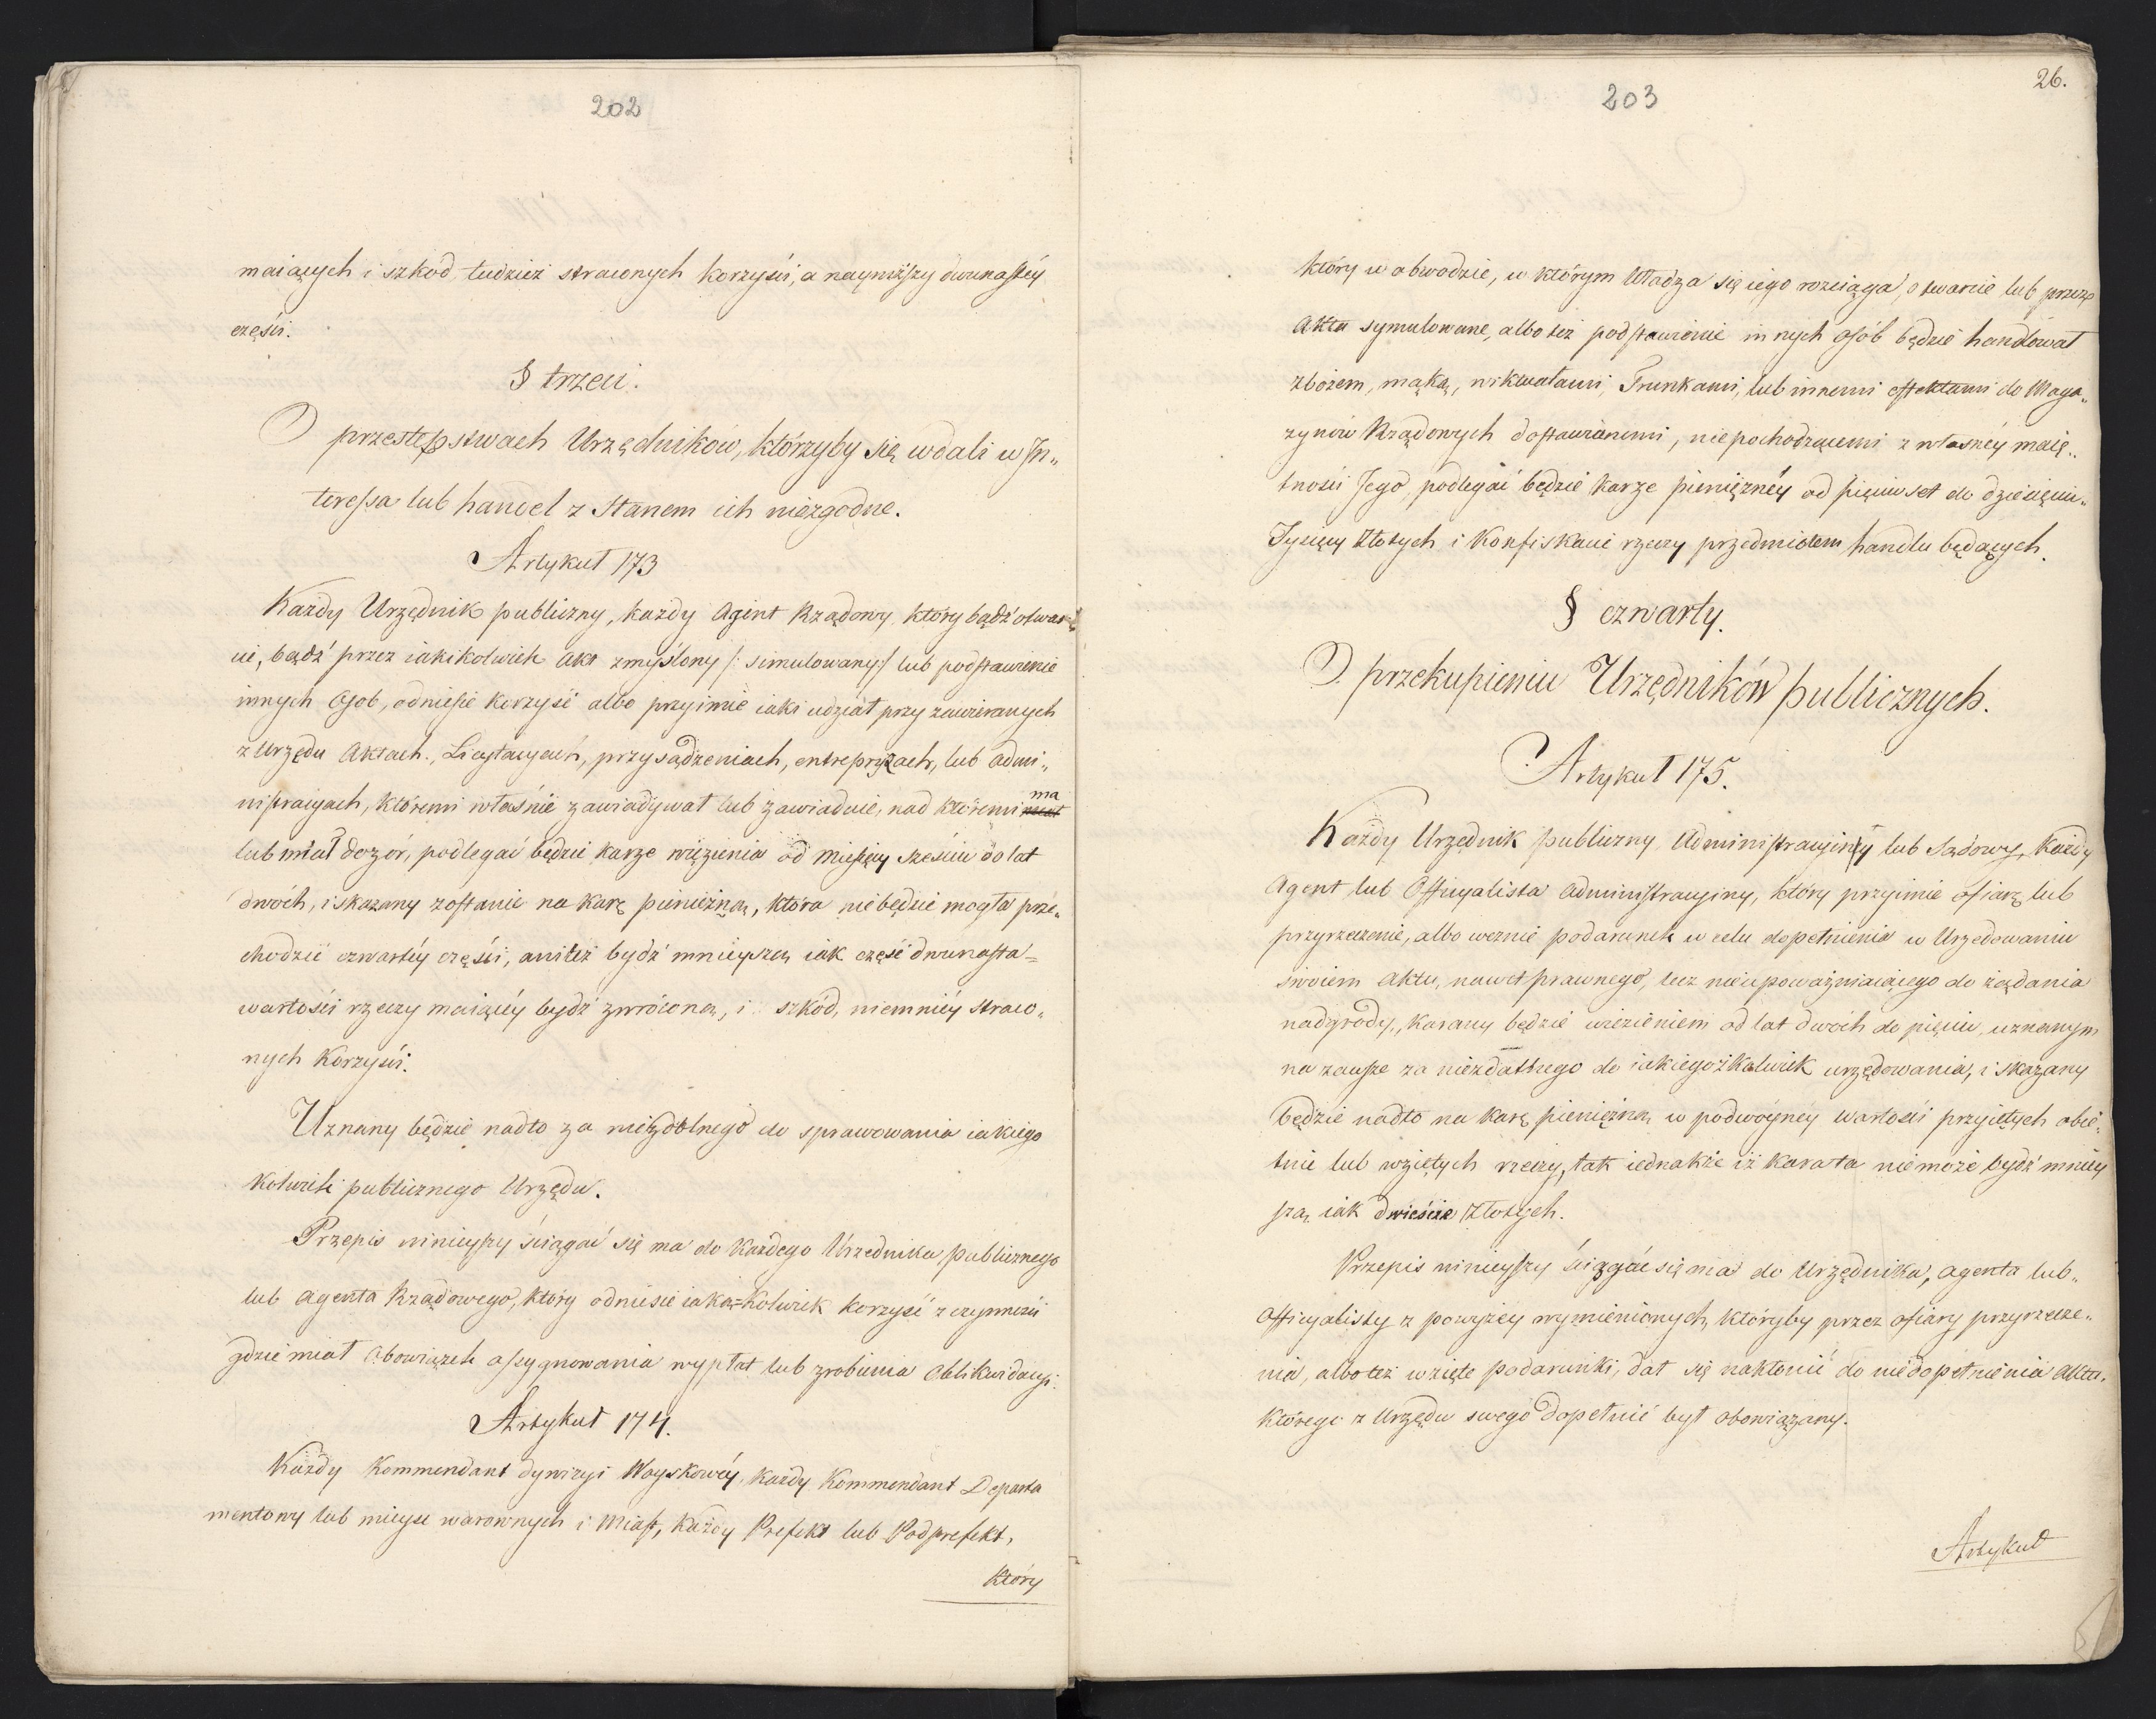 202
maiących i szkod tudzież straconych korzyści, a naymnieyszy dwunastéy
części.
§ trzeci.
O przestępstwach Urzędników, którzyby się wdali w In„
teressa lub handel z Stanem ich niezgodne.
Artykuł 173
Każdy Urzędnik publiczny, każdy Agent Rządowy który bądź otwar„
cie, bądź przez iakikolwiek Akt zmyślony /: simulowany :/ lub podstawienie
innych Osob, odniesie korzyść albo przyimie iaki udział przy zawieranych
z Urzędu Aktach, Licytacyach, przysądzeniach, entrepryzach, lub admi„
nistracyach, któremi właśnie zawiadywał lub zawiaduie, nad któremi ma
lub miał dozór, podlegać będzie karze więzienia od miesięcy sześciu do lat
dwóch, i skazany zostanie na karę pieniężną, która nie będzie mogła prze„
chodzić czwartéy części, ani też bydź mnieyszą iak część dwunasta=
wartości rzeczy maiącéy bydź zwróconą, i szkód, niemniéy straco„
nych Korzyści.
Uznany będzie nadto za niezdolnego do sprawowania iakiego
kolwiek publicznego Urzędu.
Przepis ninieyszy ściągać się ma do każdego Urzędnika publicznego
lub agenta Rządowego, który odniesie iaką=kolwiek korzyść z czynności
gdzie miał obowiązek assygnowania wypłat lub zrobienia oblikwidacyi.
Artykuł 174.
Każdy Kommendant dywizyi Woyskowéy, każdy Kommendant Departa
mentowy lub mieysc warownych i Miast, każdy Prefekt lub Podprefekt,
który
26.
203
który w obwodzie, w którym Władza się iego rozciąga, otwarcie lub przez
Akta symulowane, albo też podstawienie innych osób będzie handlował
zbożem, mąką, wiktuałami, Trunkami, lub innemi effektami do Maga„
zynów Rządowych dostawianemi, nie pochodzącemi z własnéy maię„
tności Jego, podlegać będzie karze pieniężnéy od pięciuset do dziesięciu„
Tysięcy Złotych i Konfiskacie rzeczy przedmiotem handlu będących.
§ czwarty.
O przekupieniu Urzędników publicznych.
Artykuł 175.
Każdy Urzędnik publiczny Administracyiny lub Sądowy, Każdy
Agent lub Officyalista Administracyiny, który przyimie ofiarę lub
przyrzeczenie, albo weznie podarunek w celu dopełnienia w Urzędowaniu
swoiem aktu, nawet prawnego, lecz nieupoważniaiącego do żądania
nadgrody, karany będzie więzieniem od lat dwóch do pięciu, uznanym
na zawsze za niezdatnego do iakiegożkolwiek urzędowania, i skazany
będzie nadto na karę pieniężną w podwóynéy wartości przyiętych obie„
tnic lub wziętych rzeczy, tak iednakże iż kara ta nie może bydź mniey
szą iak dwieście złotych.
Przepis ninieyszy ściągać się ma do Urzędnika, agenta lub„
Officyalisty z powyżéy wymienionych, któryby przez ofiary przyrzecze„
nia, albo też wzięte podarunki, dał się nakłonić do niedopełnienia Aktu,
którego z Urzędu swego dopełnić był obowiązany.
Artykuł